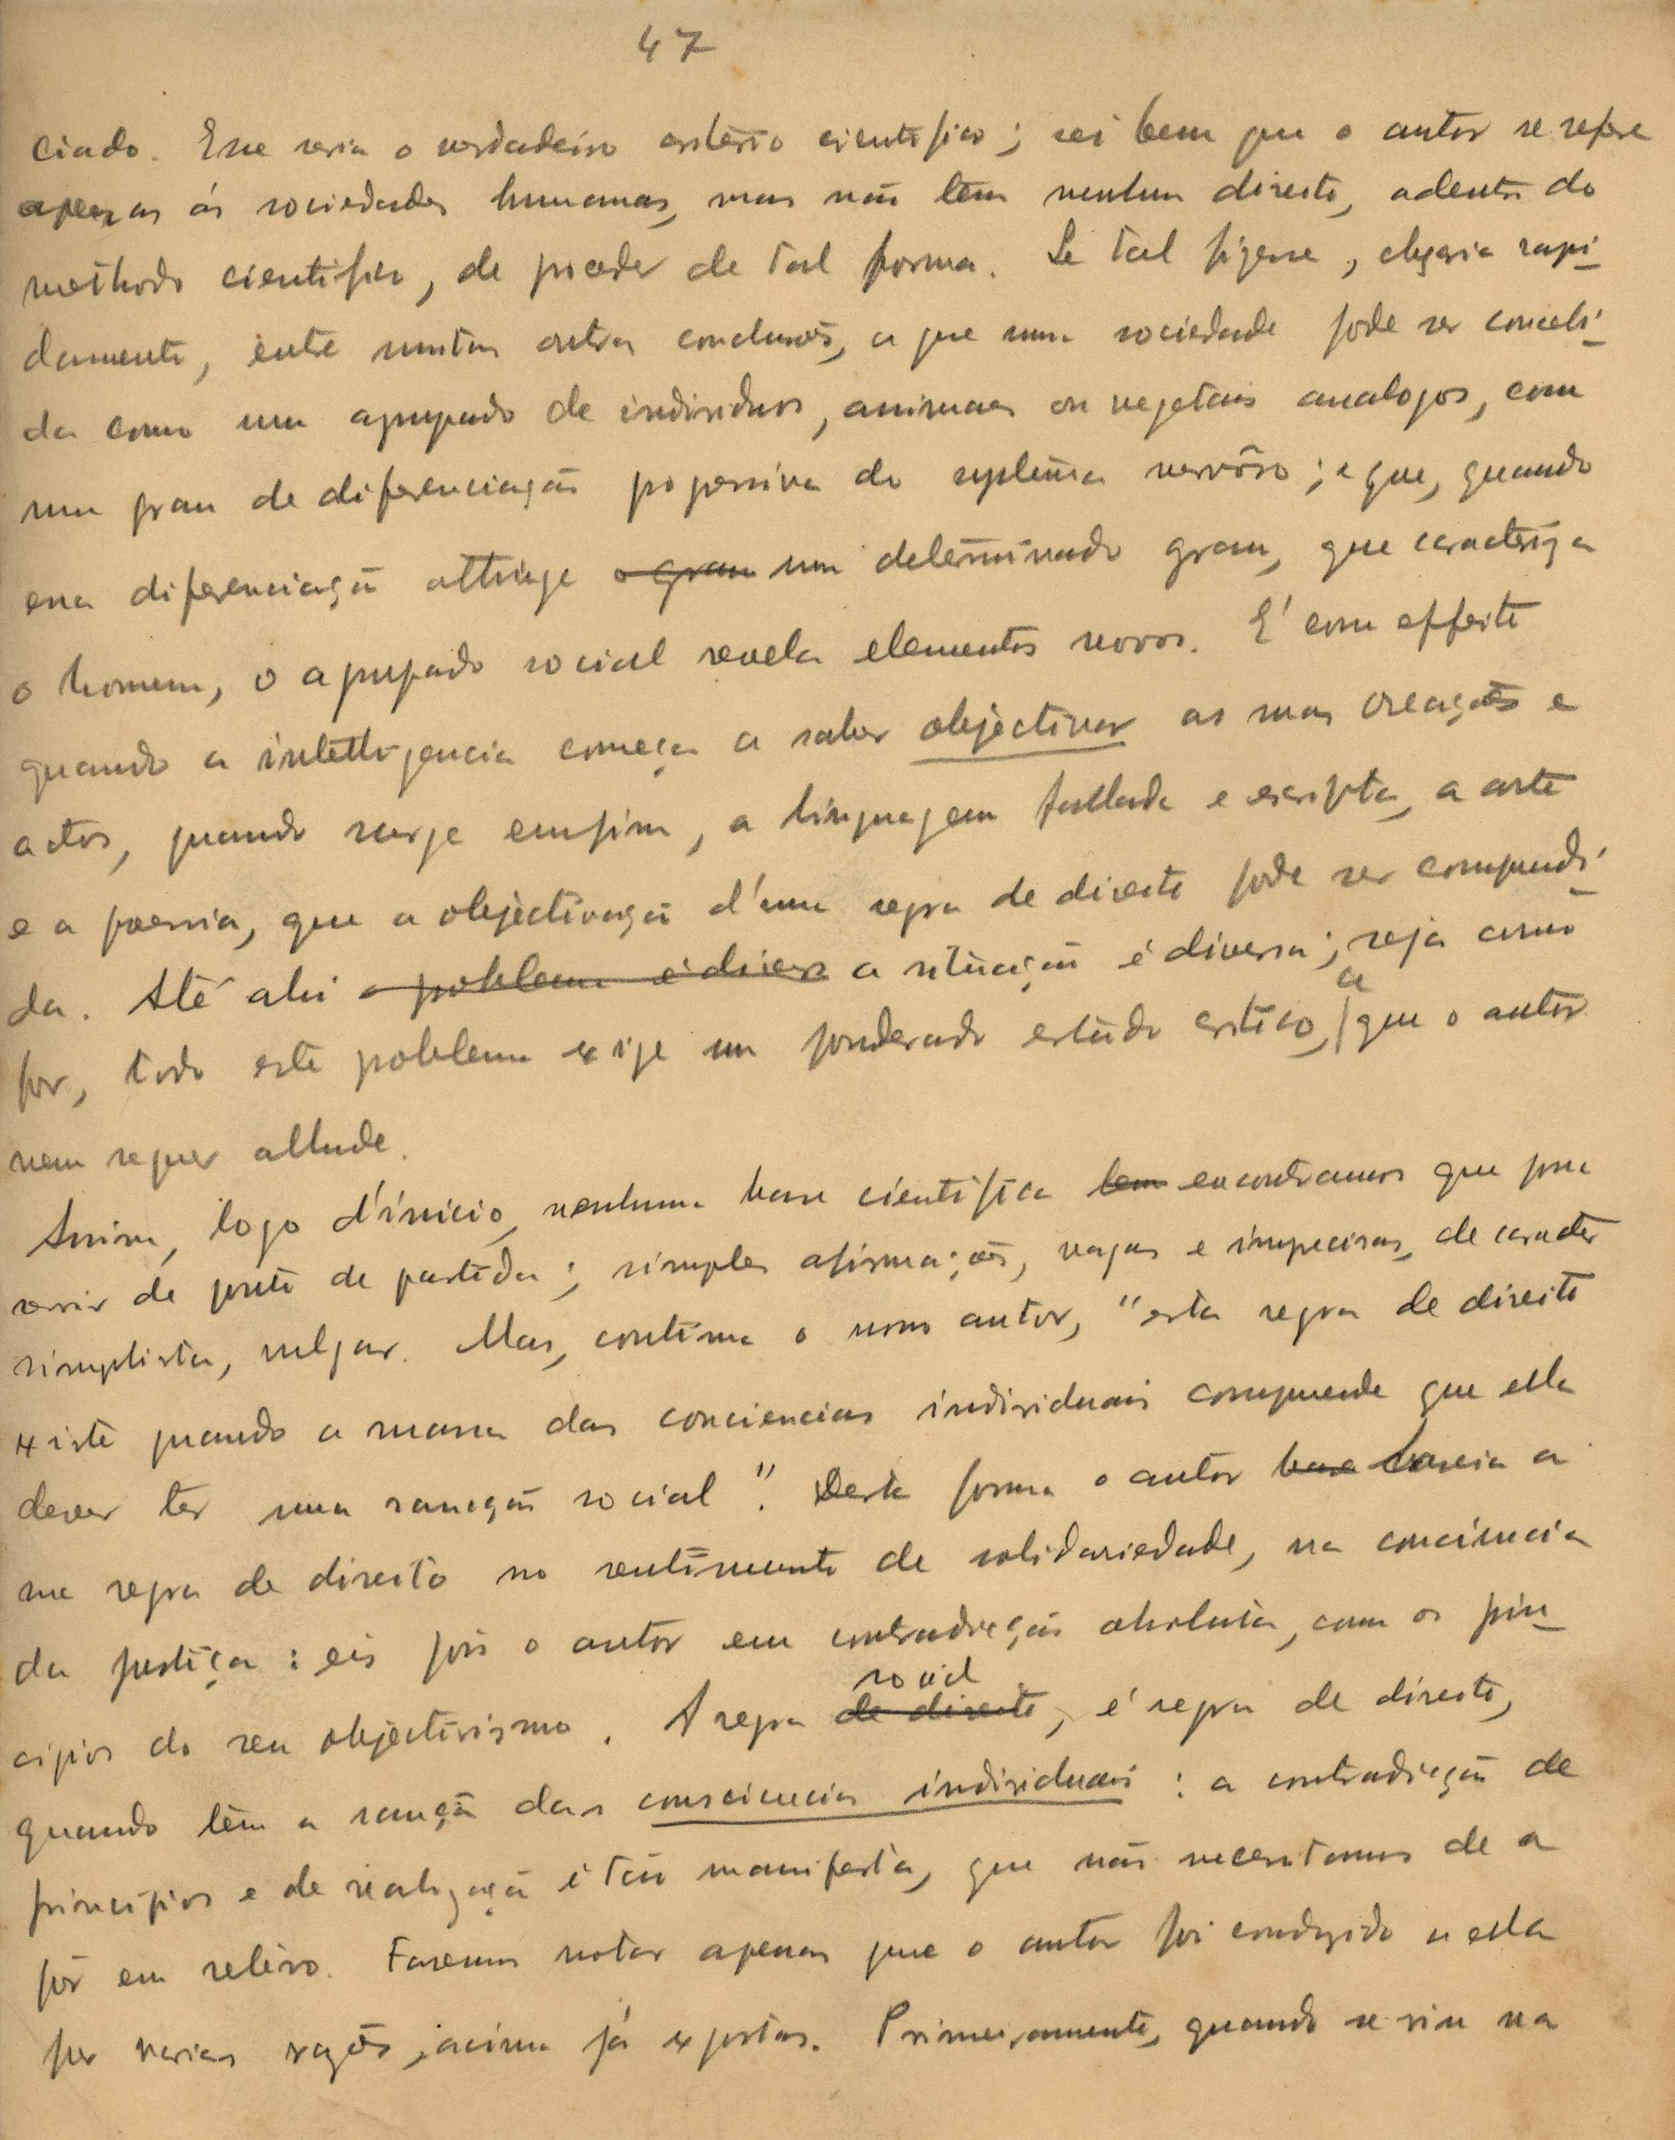 47
ciado. Esse seria o verdadeiro criterio cientifico; sei bem que o autor se refere
apenas ás sociedades humanas, mas não tem nenhum direito, adentro do
methodo cientifico, de proceder de tal forma. Se tal fizesse, chegaria rapi-
damente, entre muitas outras conclusões, a que uma sociedade pode ser concebi-
da como um agrupado de individuos, animaes ou vegetais analogos, com
um grau de diferenciação progressiva do systema nervôso; e que, quando
essa diferenciação attinge o grau um determinado grau, que caracteriza
o homem, o agrupado social revela elementos novos. E' com effeito
quando a intelligencia começa a saber objectivar as suas creações e
actos, quando surge emfim, a linguagem fallada e escripta, a arte
e a poesia, que a objectivação d'uma regra de direito pode ser comprendi-
da. Até ahi o problema é diverso a situação é diversa; seja como
for, todo este problema exije um ponderado estudo critico, a que o autor
nem sequer allude.
Assim, logo d'inicio, nenhuma base cientifica tem encontramos que possa
servir de ponto de partida; simples afirmações, vagas e imprecisas, de caracter
simplista, vulgar. Mas, continua o nosso autor, "esta regra de direito
existe quando a massa das conciencias individuais comprende que ella
dever ter uma sancção social". Desta forma o autor base baseia a
sua regra de direito no sentimento de solidariedade, na conciencia
da justiça: eis pois o autor em contradicção absoluta, com os prin-
cipios do seu objectivismo. A regra de direito social, é regra de direito,
quando têm a sanção das consciencias individuais: a contradicção de
principios e de realização é tão manifesta, que não necessitamos de a
pôr em relêvo. Faremos notar apenas que o autor foi conduzido a ella
por varias razões, acima já expostas. Primeiramente, quando se viu na